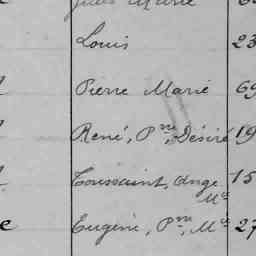 Jules Marie
Louis 23
Pierre Marie 69
René, Pre, Désiré 19
Toussaint, Ange 15
Mie
e Eugène, Pre, Mie 27